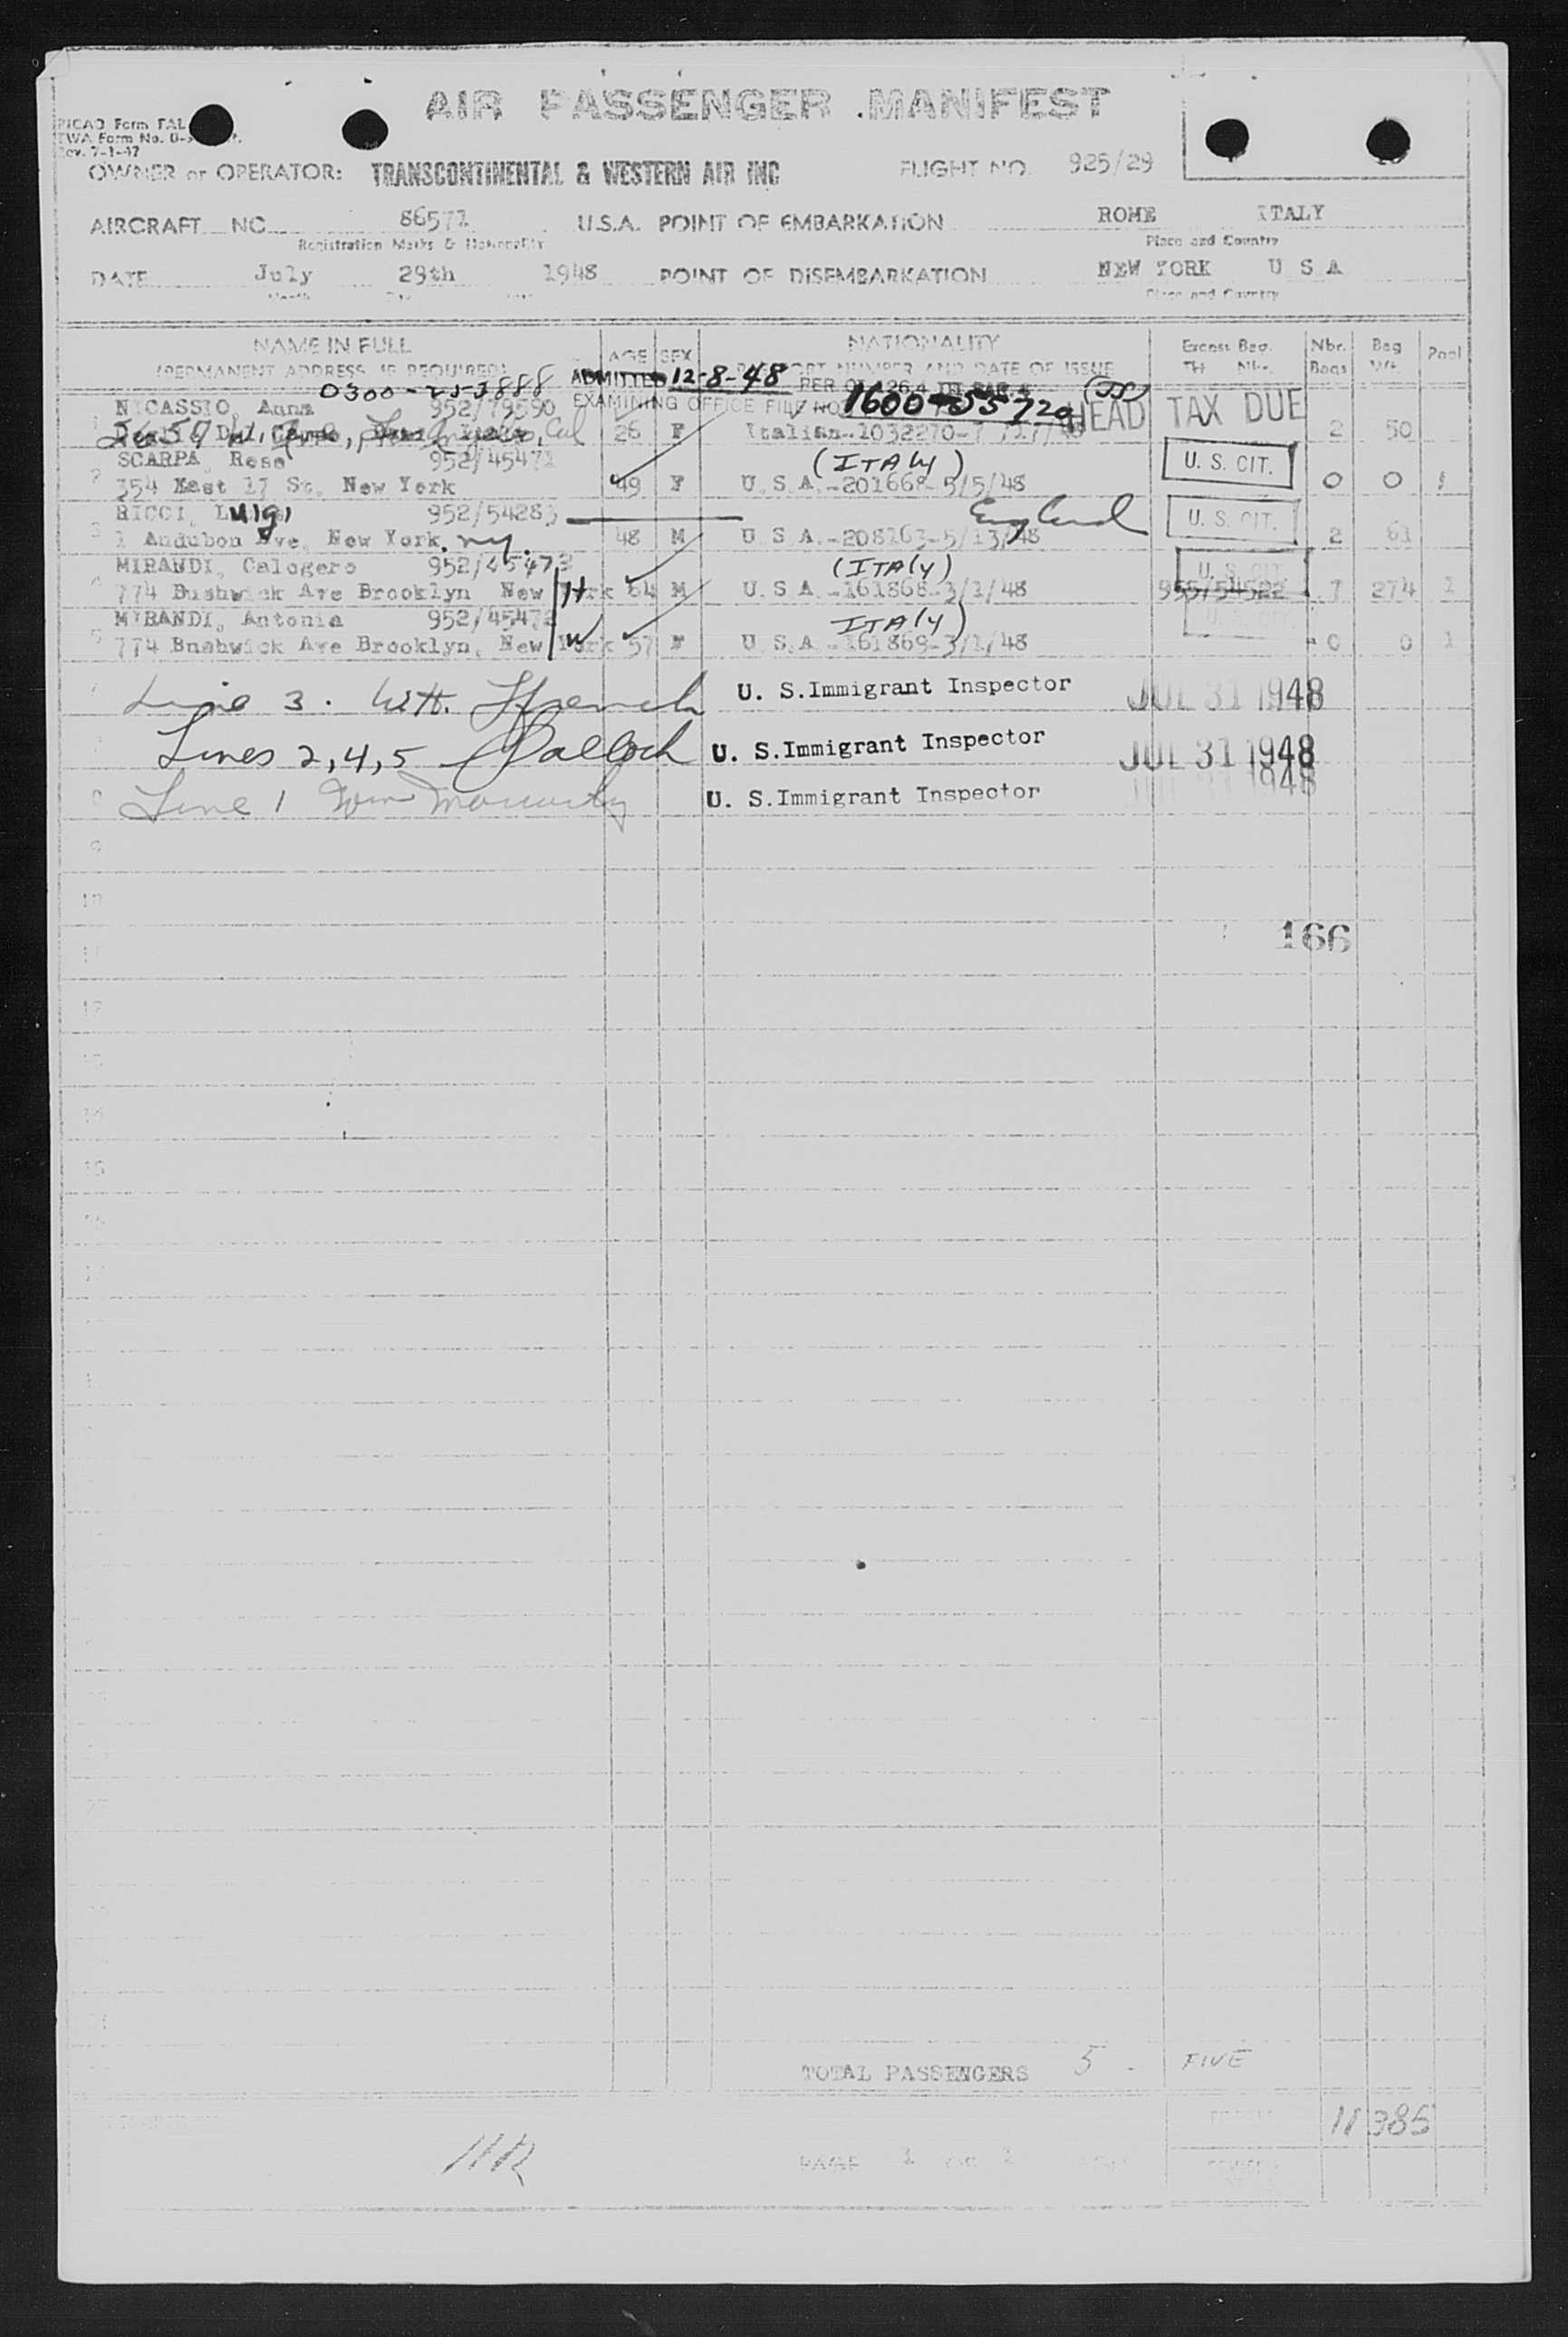 AIR PASSENGER MANIFEST
PICAO Form FAL
TWA Form No. 0-
Rev. 7-1-47
OWNER or OPERATOR: TRANSCONTINENTAL & WESTERN AIR INC FLIGHT NO. 925/29
AIRCRAFT NC 86571 U.S.A. POINT OF EMBARKATION ROME ITALY
Registration Marks & Nationality Place and Country
DATE July 29th 1948 POINT OF DISEMBARKATION NEW YORK U S A
Month Day Year Place and Country
NAME IN FULL AGE SEX NATIONALITY Excess Bag. Nbr. Bag Pool
(PERMANENT ADDRESS IF REQUIRED) PASSPORT NUMBER AND DATE OF ISSUE Tkt Nbr. Bags Wt.
0300-253888 ADMITTED 12-8-48 PER
EXAMINING OFFICE FILE NO. 1600-55720 HEAD TAX DUE
1 NICASSIO, Anna 952/79590
26 F Italian-1032270- 2 50
SCARPA, Rose 952/45471 (ITALY) U. S. CIT.
2 354 East 17 St. New York 49 F U.S.A.-201668-5/5/48 0 0 1
RICCI, Luigi 952/54283 England U. S. CIT.
3 1 Audubon Ave, New York. NY. 48 M U S A.-208163-5/13/48 2 61
MIRANDI, Calogero 952/45473 (ITALY) U. S. CIT.
4 774 Bushwick Ave Brooklyn New York H 64 M U.S A.-161868-3/1/48 955/54522 7 274 1
MIRANDI, Antonia 952/45472 ITALY)
5 774 Bushwick Ave Brooklyn, New York W 57 F U.S.A.-161869-3/1/48 0 0 1
Line 3. U. S.Immigrant Inspector JUL 31 1948
Lines 2,4,5 U. S.Immigrant Inspector JUL 31 1948
Line 1 U. S.Immigrant Inspector JUL 31 1948
9
10
11 166
12
13
14
15
TOTAL PASSENGERS 5 - FIVE
11 385
PAGE 1 OF 1